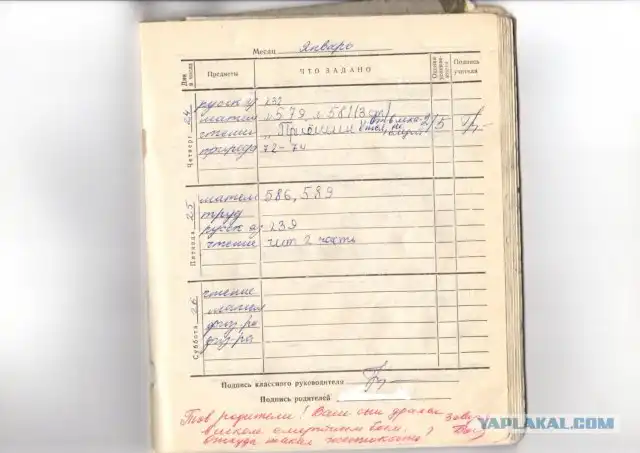 Месяц Январь
Дни и числа Предметы ЧТО ЗАДАНО Оценка успеваемости Подпись учителя
Четверг 24
русск яз 232
матем 579, 581 (3
чтение
природа 72-74
Пятница 25
матем 586, 589
труд
русск яз 239
чтение чит 2 часть
Суббота 26
чтение
матем
физ-ра
физ-ра
Подпись классного руководителя
Подпись родителей
Тов родители! Ваш сын дрался
в школе смертным боем.
откуда такая жестокость
YAPLAKAL.COM